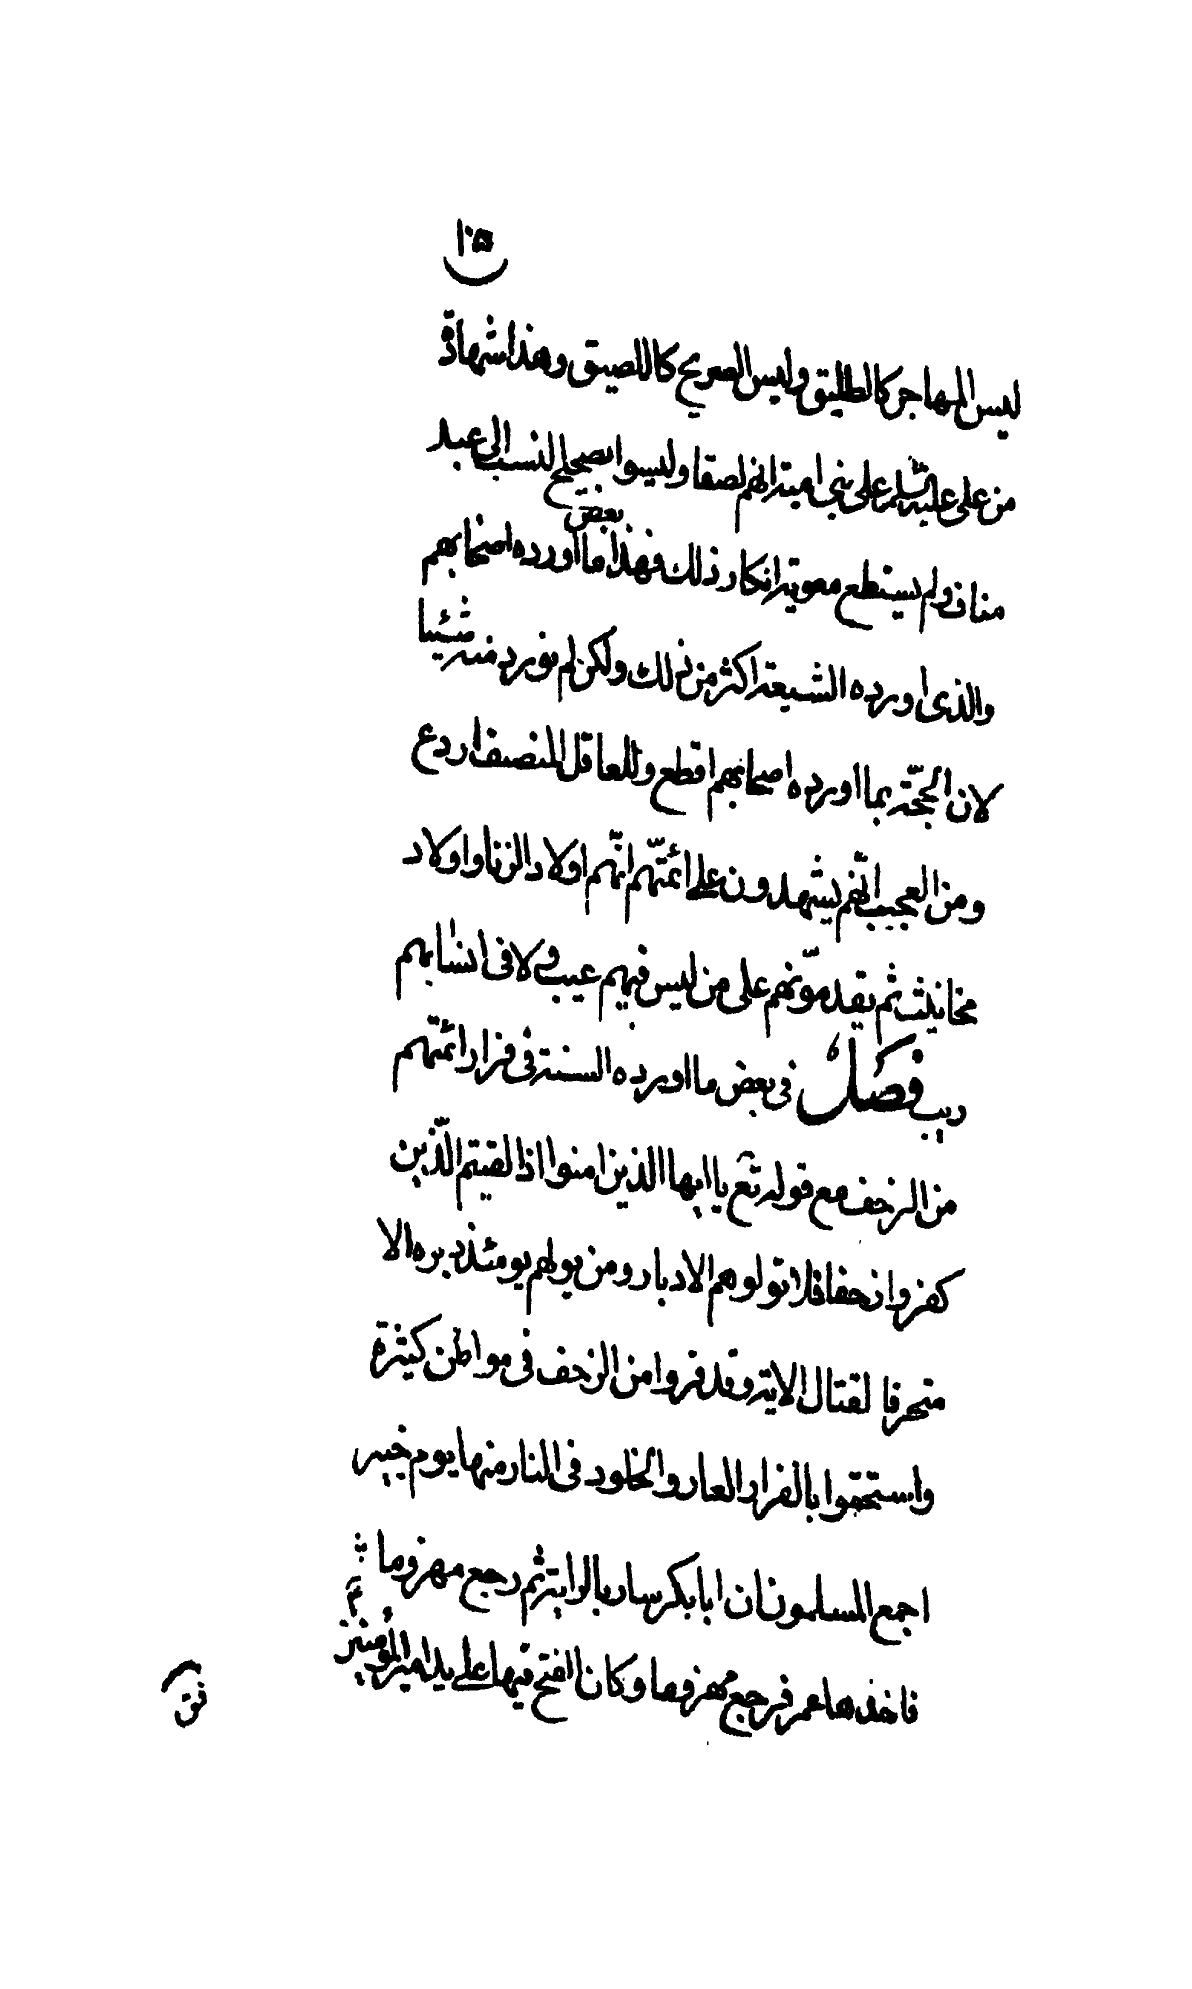 ١٠٥
ليس المهاجر كالطليق وليس الصريح كاللصيق وهذا شهادة
من علي عليه السلم على بني امية انهم لصقا وليسوا بصحيح النسب الى عبد
مناف ولم يستطع معوية انكار ذلك فهذا ما اورده اصحابهم
بعض
والذي اورده الشيعة اكثر من ذلك ولكن لم نورد منه شيئا
لان الحجة بما اورده اصحابهم اقطع وللعاقل المنصف اردع
ومن العجيب انهم يشهدون على ائمتهم انهم اولاد الزنا واولاد
مخانيث ثم يقدمونهم على من ليس فيهم عيب ولا في انسابهم
ريب فصل في بعض ما اورده السنة في فرار ائمتهم
من الزحف مع قوله تع يا ايها الذين امنوا اذا لقيتم الذين
كفروا زحفا فلا تولوهم الادبار ومن يولهم يومئذ دبره الا
متحرفا لقتال الاية وقد فروا من الزحف في مواطن كثيرة
واستحقوا بالفرار العار والخلود في النار منها يوم خيبر
اجمع المسلمون ان ابا بكر سار بالراية ثم رجع مهزوما ثم
فاخذها عمر فرجع مهزوما وكان الفتح فيها على يد امير المؤمنين ع